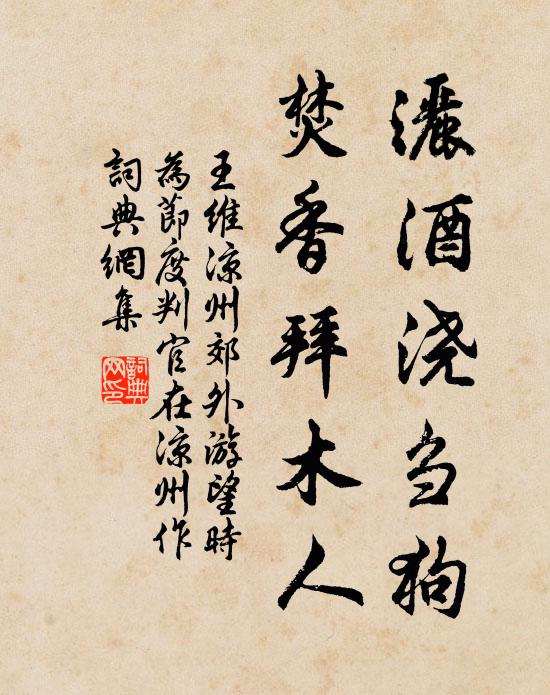 灑酒浇刍狗
焚香拜木人
王維涼州郊外游望時
為節度判官在涼州作
詞典網集
詞典
网印